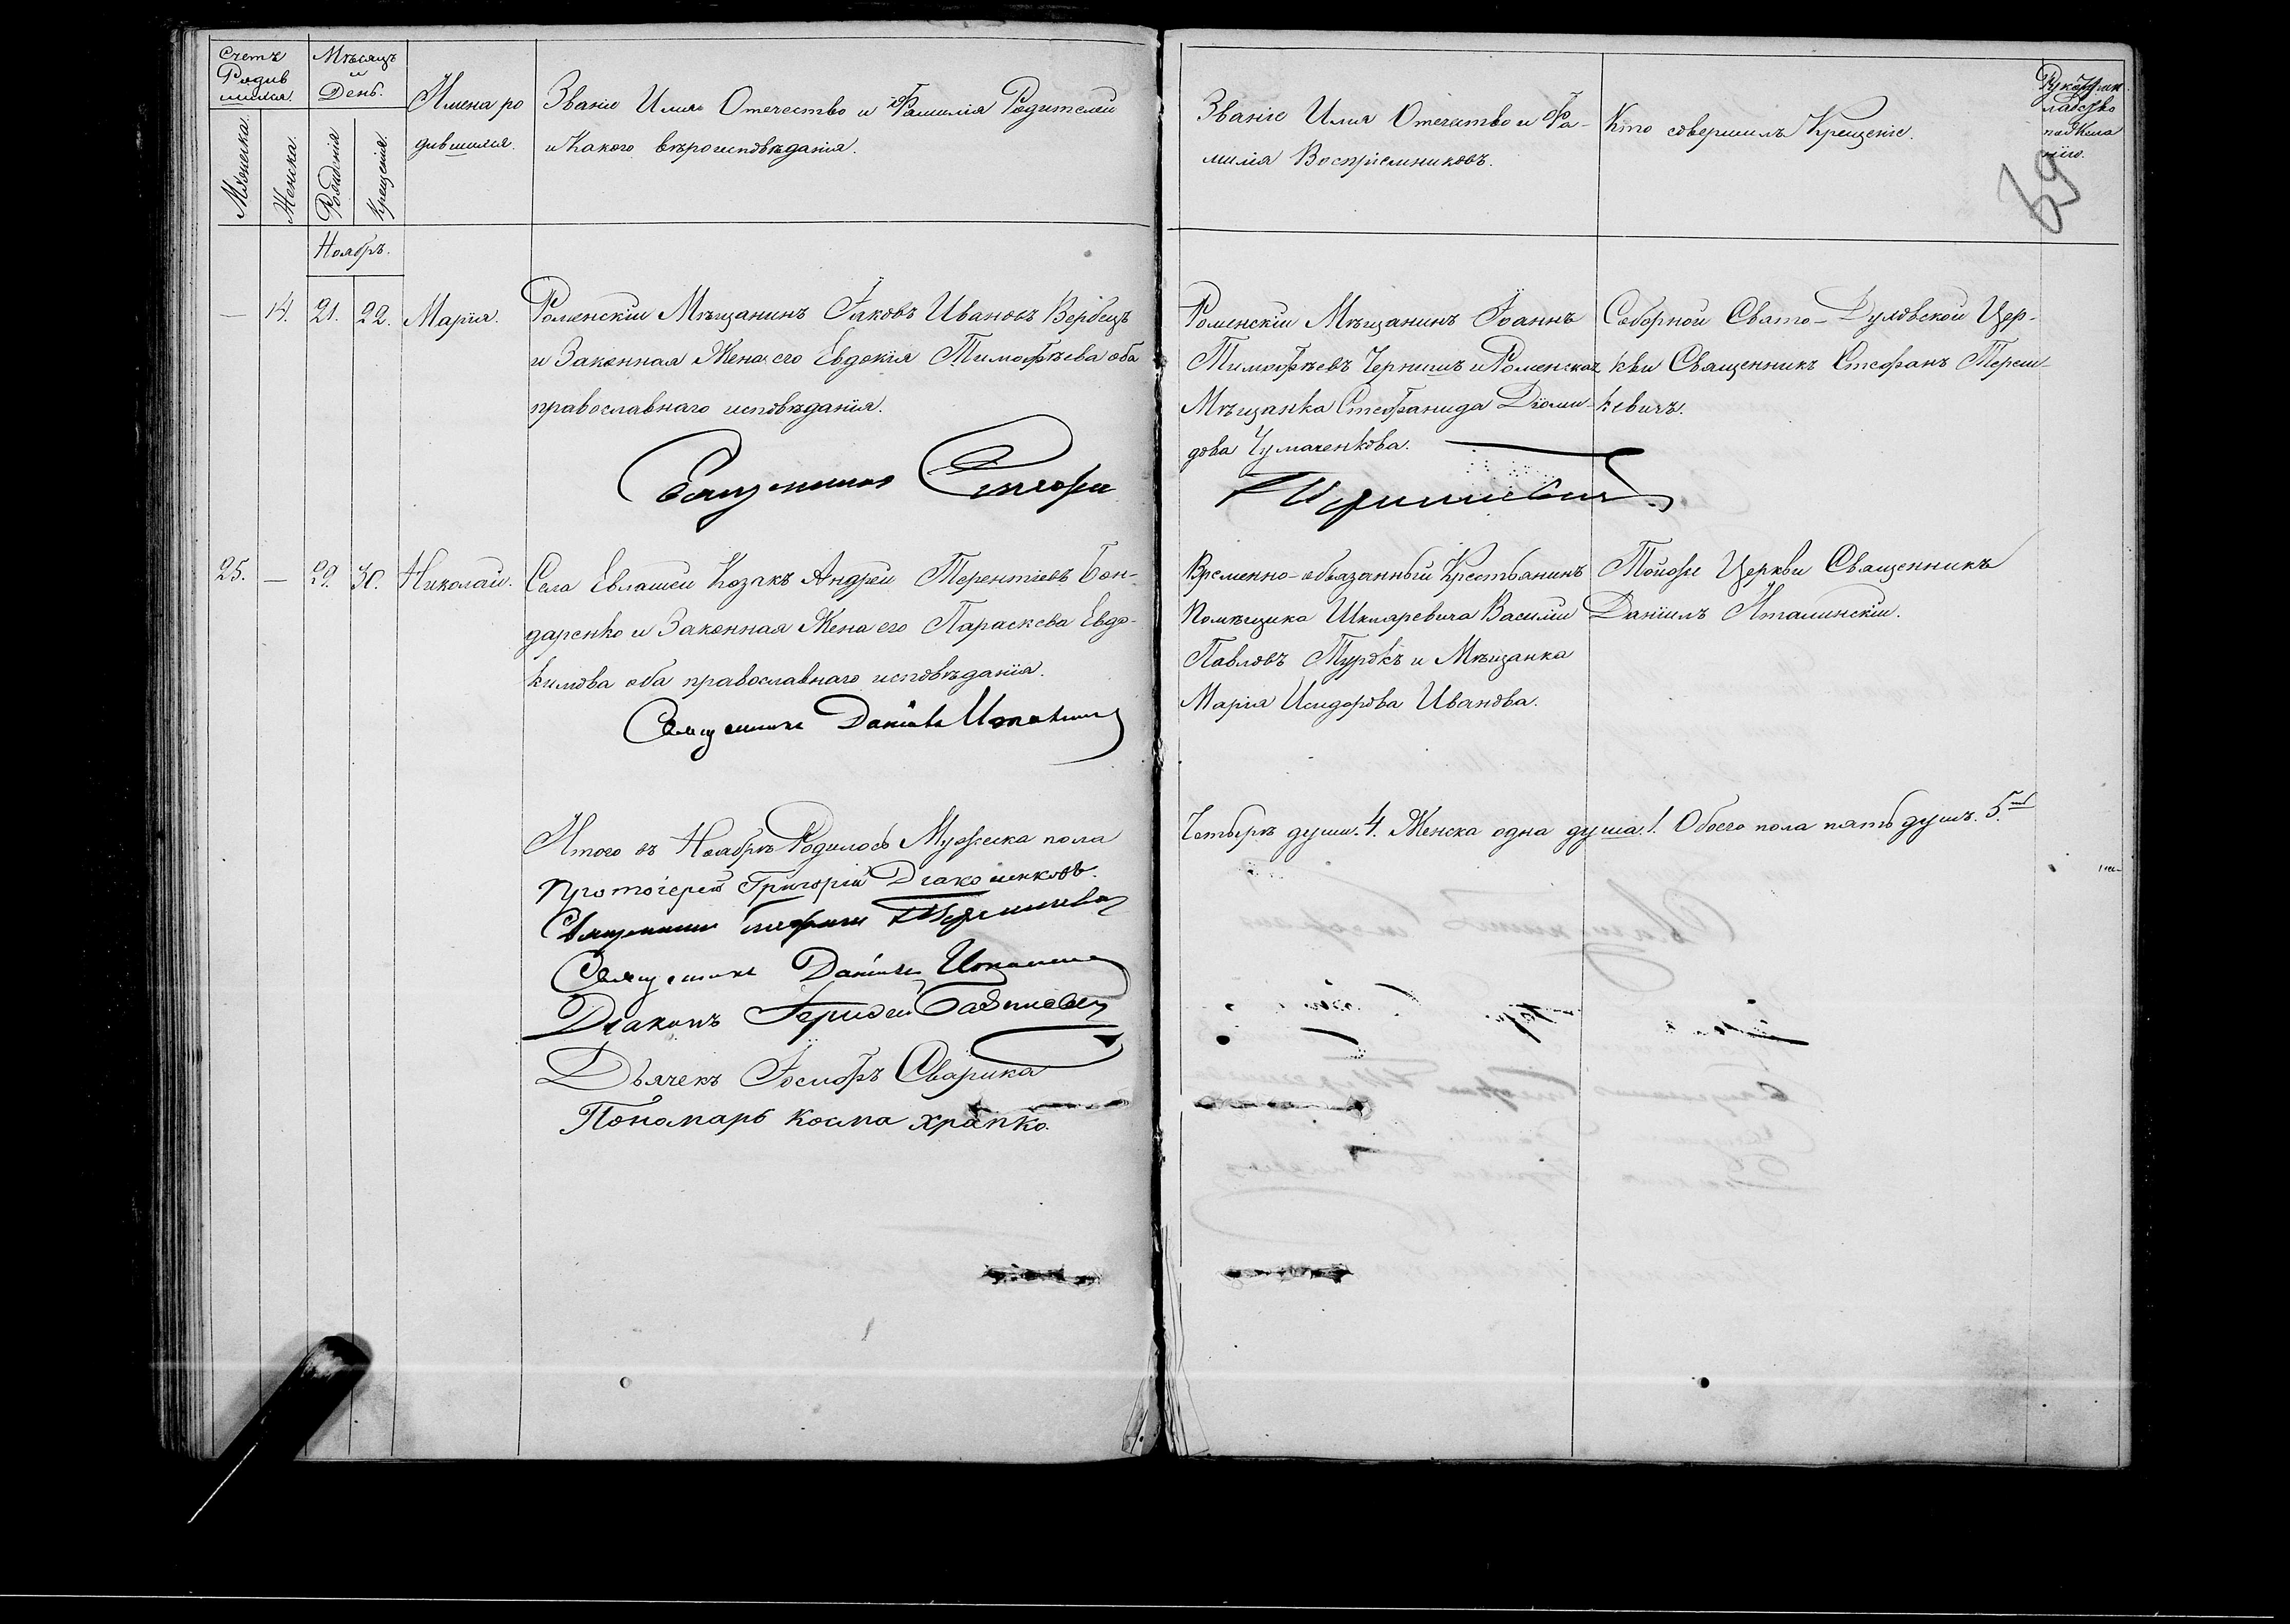 Счетъ
Родив
шихся.
Мѣсяцъ
и
День.
Мужеска.
Женска.
Рожденія
Крещенія.
Имена ро
дившихся.
Званіе Имя Отечество и Фамилія Родителей
и Какого вѣроисповѣданія.
Званіе Имя Отечество и Фа-
милія Воспріемниковъ.
Кто совершилъ Крещеніе.
Рукоприк
ладство
по
69
Ноябрь.
— 14. 21. 22. Марія.
Роменскій Мѣщанинъ Іаковъ Ивановъ Вербецъ
и Законная Жена его Евдокія Тимофѣева оба
православнаго исповѣданія.
Священникъ Стефанъ
Роменскій Мѣщанинъ Іоаннъ
Тимофѣевъ Чернышъ и Роменская
Мѣщанка Стефанида Діоми-
дова Чумаченкова.
Терешкевичъ
Соборной Свято-Духовской Цер-
кви Священникъ Стефанъ Тереш-
кевичъ.
25. — 29. 30. Николай.
Села Евлашей Козакъ Андрей Терентіевъ Бон-
даренко и Законная Жена его Параскева Евдо-
кимова оба православнаго исповѣданія.
Священникъ Даніилъ Италинскій
Временно-обязанный Крестьянинъ
Помѣщика Шкляревича Василій
Павловъ Турокъ и Мѣщанка
Марія Исидорова Иванова.
Тойоже Церкви Священникъ
Даніилъ Италинскій.
Итого въ Ноябрѣ Родилось Мужеска пола
Четырѣ души. 4. Женска одна душа. 1. Обоего пола пять душъ. 5.
Протоіерей Григорій
Священникъ Стефанъ Терешкевичъ
Священникъ Даніилъ Италинскій
Діаконъ
Дьячекъ Іосифъ Сварика
Пономарь Косма Храпко.